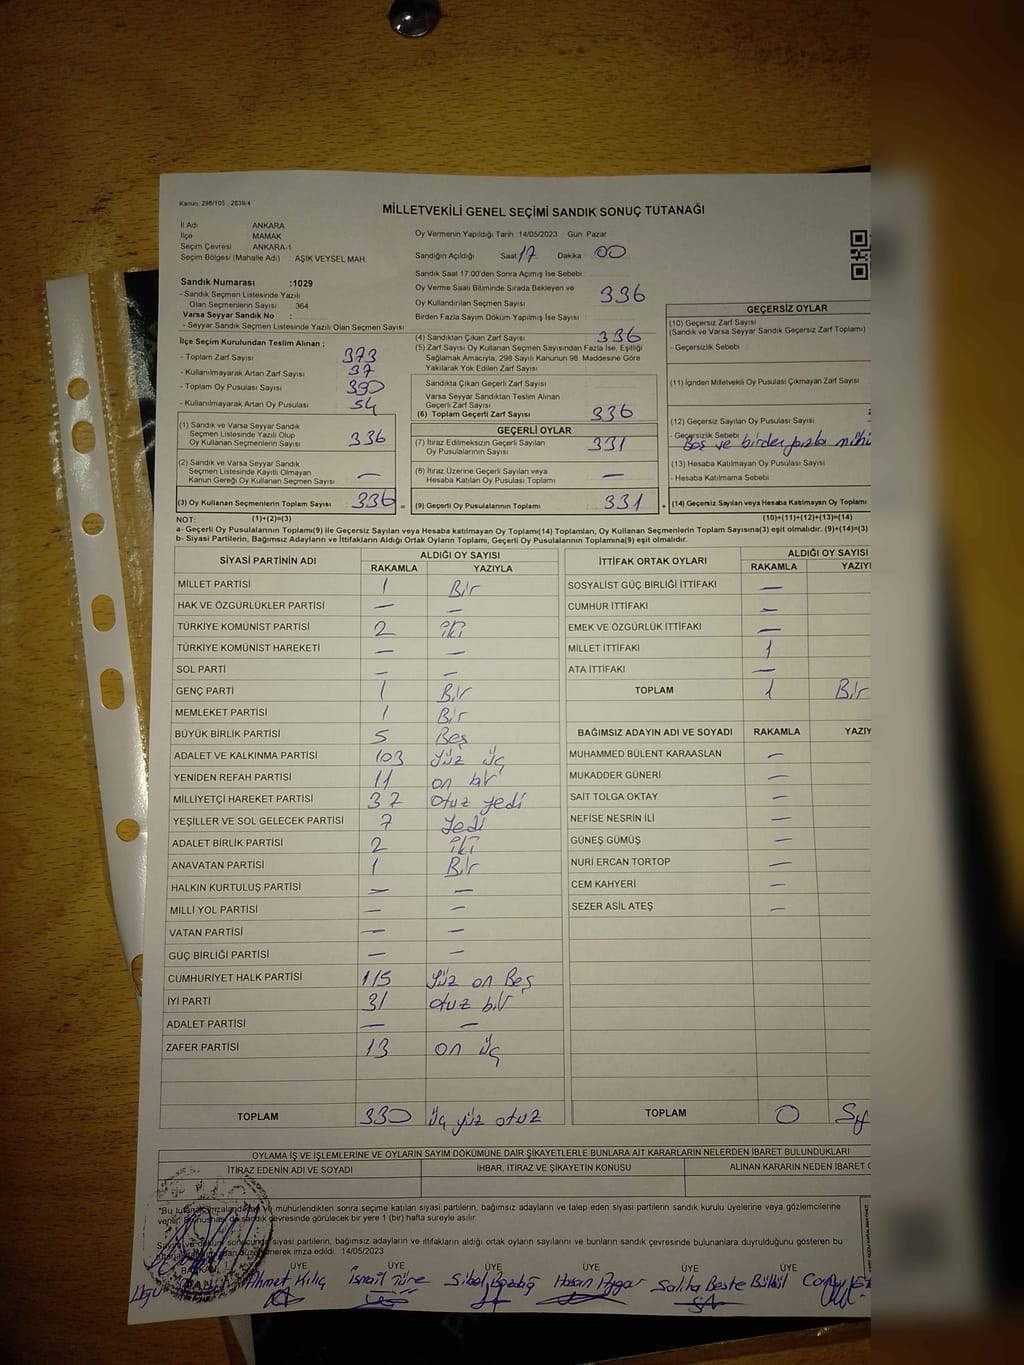 Kanun: 298/105 , 2839/4
MİLLETVEKİLİ GENEL SEÇİMİ SANDIK SONUÇ TUTANAĞI
İl Adı ANKARA
İlçe MAMAK
Seçim Çevresi ANKARA-1
Seçim Bölgesi (Mahalle Adı) : AŞIK VEYSEL MAH.
Oy Vermenin Yapıldığı Tarih :14/05/2023 Gün: Pazar
Sandığın Açıldığı Saat 17 Dakika 00
Sandık Saat 17:00'den Sonra Açılmış İse Sebebi :
Oy Verme Saati Bitiminde Sırada Bekleyen ve
Oy Kullandırılan Seçmen Sayısı 336
Birden Fazla Sayım Döküm Yapılmış İse Sayısı :
Sandık Numarası :1029
- Sandık Seçmen Listesinde Yazılı
Olan Seçmenlerin Sayısı : 364
Varsa Seyyar Sandık No :
- Seyyar Sandık Seçmen Listesinde Yazılı Olan Seçmen Sayısı:
İlçe Seçim Kurulundan Teslim Alınan ;
- Toplam Zarf Sayısı 373
- Kullanılmayarak Artan Zarf Sayısı 37
- Toplam Oy Pusulası Sayısı 390
- Kullanılmayarak Artan Oy Pusulası 54
(4) Sandıktan Çıkan Zarf Sayısı 336
(5) Zarf Sayısı Oy Kullanan Seçmen Sayısından Fazla İse, Eşitliği
Sağlamak Amacıyla, 298 Sayılı Kanunun 98. Maddesine Göre
Yakılarak Yok Edilen Zarf Sayısı
Sandıkta Çıkan Geçerli Zarf Sayısı
Varsa Seyyar Sandıktan Teslim Alınan
Geçerli Zarf Sayısı
(6) Toplam Geçerli Zarf Sayısı 336
(1) Sandık ve Varsa Seyyar Sandık
Seçmen Listesinde Yazılı Olup
Oy Kullanan Seçmenlerin Sayısı 336
(2) Sandık ve Varsa Seyyar Sandık
Seçmen Listesinde Kayıtlı Olmayan
Kanun Gereği Oy Kullanan Seçmen Sayısı —
(3) Oy Kullanan Seçmenlerin Toplam Sayısı 336 =
GEÇERLİ OYLAR
(7) İtiraz Edilmeksizin Geçerli Sayılan
Oy Pusulalarının Sayısı 331
(8) İtiraz Üzerine Geçerli Sayılan veya
Hesaba Katılan Oy Pusulası Toplamı —
(9) Geçerli Oy Pusulalarının Toplamı : 331 +
GEÇERSİZ OYLAR
(10) Geçersiz Zarf Sayısı
(Sandık ve Varsa Seyyar Sandık Geçersiz Zarf Toplamı)
- Geçersizlik Sebebi :
(11) İçinden Milletvekili Oy Pusulası Çıkmayan Zarf Sayısı
(12) Geçersiz Sayılan Oy Pusulası Sayısı
- Geçersizlik Sebebi : Boş ve birden fazla mühü
(13) Hesaba Katılmayan Oy Pusulası Sayısı
- Hesaba Katılmama Sebebi :
(14) Geçersiz Sayılan veya Hesaba Katılmayan Oy Toplamı
NOT: (1)+(2)=(3) (10)+(11)+(12)+(13)=(14)
a- Geçerli Oy Pusulalarının Toplamı(9) ile Geçersiz Sayılan veya Hesaba katılmayan Oy Toplamı(14) Toplamları, Oy Kullanan Seçmenlerin Toplam Sayısına(3) eşit olmalıdır. (9)+(14)=(3)
b- Siyasi Partilerin, Bağımsız Adayların ve İttifakların Aldığı Ortak Oyların Toplamı, Geçerli Oy Pusulalarının Toplamına(9) eşit olmalıdır.
SİYASİ PARTİNİN ADI ALDIĞI OY SAYISI
RAKAMLA YAZIYLA
MİLLET PARTİSİ 1 Bir
HAK VE ÖZGÜRLÜKLER PARTİSİ — —
TÜRKİYE KOMÜNİST PARTİSİ 2 iki
TÜRKİYE KOMÜNİST HAREKETİ — —
SOL PARTİ — —
GENÇ PARTİ 1 Bir
MEMLEKET PARTİSİ 1 Bir
BÜYÜK BİRLİK PARTİSİ 5 Beş
ADALET VE KALKINMA PARTİSİ 103 Yüz üç
YENİDEN REFAH PARTİSİ 11 on bir
MİLLİYETÇİ HAREKET PARTİSİ 37 otuz yedi
YEŞİLLER VE SOL GELECEK PARTİSİ 7 Yedi
ADALET BİRLİK PARTİSİ 2 iki
ANAVATAN PARTİSİ 1 Bir
HALKIN KURTULUŞ PARTİSİ — —
MİLLİ YOL PARTİSİ — —
VATAN PARTİSİ — —
GÜÇ BİRLİĞİ PARTİSİ — —
CUMHURİYET HALK PARTİSİ 115 Yüz on Beş
İYİ PARTİ 31 otuz bir
ADALET PARTİSİ — —
ZAFER PARTİSİ 13 on üç
TOPLAM 330 üç yüz otuz
İTTİFAK ORTAK OYLARI ALDIĞI OY SAYISI
RAKAMLA YAZIY
SOSYALİST GÜÇ BİRLİĞİ İTTİFAKI —
CUMHUR İTTİFAKI —
EMEK VE ÖZGÜRLÜK İTTİFAKI —
MİLLET İTTİFAKI 1
ATA İTTİFAKI —
TOPLAM 1 Bir
BAĞIMSIZ ADAYIN ADI VE SOYADI RAKAMLA YAZIY
MUHAMMED BÜLENT KARAASLAN —
MUKADDER GÜNERİ —
SAİT TOLGA OKTAY —
NEFİSE NESRİN İLİ —
GÜNEŞ GÜMÜŞ —
NURİ ERCAN TORTOP —
CEM KAHYERİ —
SEZER ASİL ATEŞ —
TOPLAM 0 Sıf
OYLAMA İŞ VE İŞLEMLERİNE VE OYLARIN SAYIM DÖKÜMÜNE DAİR ŞİKAYETLERLE BUNLARA AİT KARARLARIN NELERDEN İBARET BULUNDUKLARI
İTİRAZ EDENİN ADI VE SOYADI İHBAR, İTİRAZ VE ŞİKAYETİN KONUSU ALINAN KARARIN NEDEN İBARET O
"Bu tutanak imzalandıktan ve mühürlendikten sonra seçime katılan siyasi partilerin, bağımsız adayların ve talep eden siyasi partilerin sandık kurulu üyelerine veya gözlemcilerine
sandık çevresinde görülecek bir yere 1 (bir) hafta süreyle asılır.
siyasi partilerin, bağımsız adayların ve ittifakların aldığı ortak oyların sayılarını ve bunların sandık çevresinde bulunanlara duyrulduğunu gösteren bu
imza edildi. 14/05/2023
BAŞKAN ÜYE ÜYE ÜYE ÜYE ÜYE ÜYE
Ahmet Kılıç İsmail Türe Sibel Bozdağ Hasan Saliha Beste Bülbül